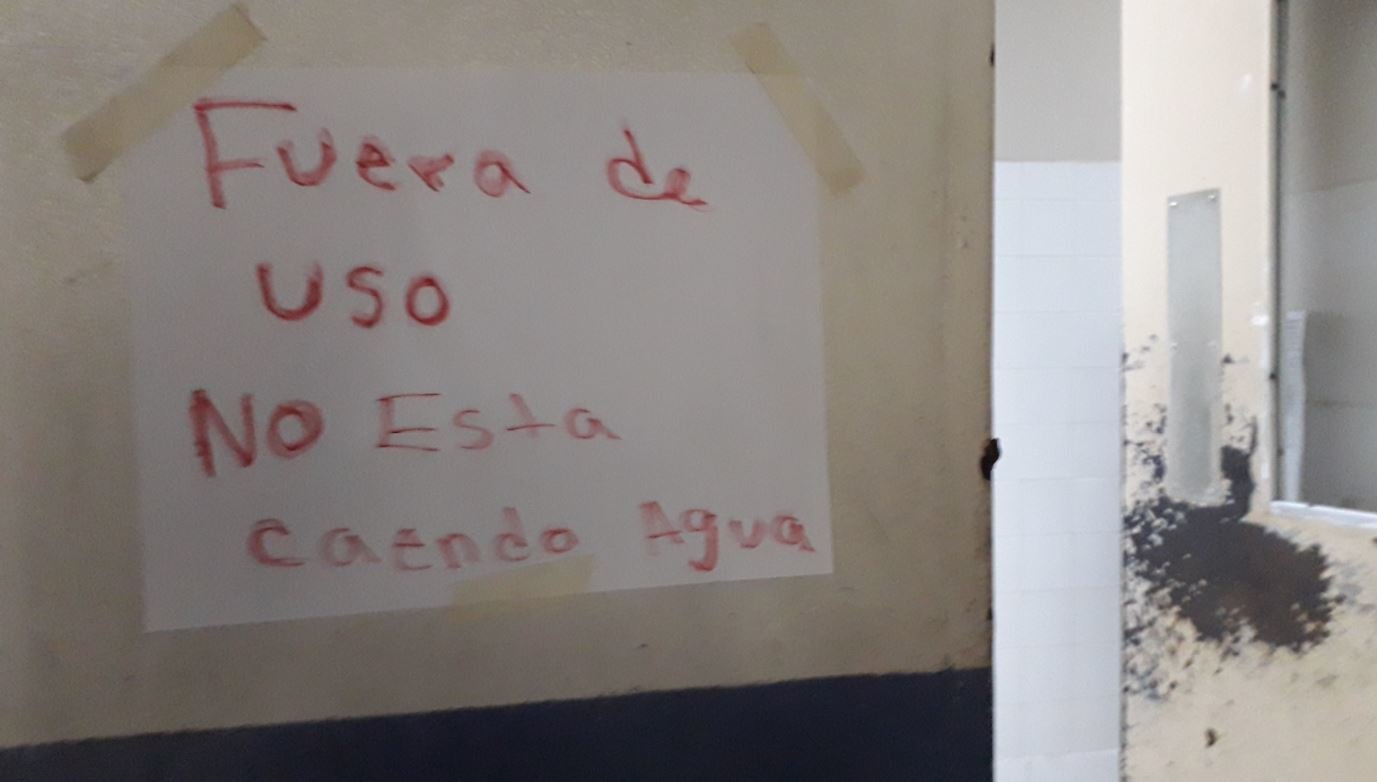 Fuera de
uso
No Esta
caendo Agua